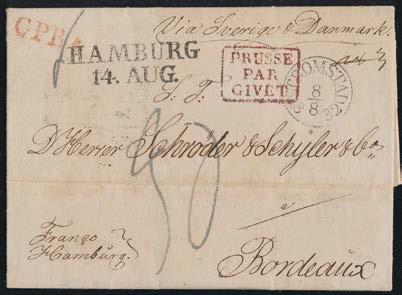 Via Sverige & Danmark.
HAMBURG
14. AUG.
PRUSSE
PAR
GIVET
STRÖMSTAD
8
8
32
S. T.
D'Herrer Schröder & Schÿler & Co
a
Bordeaux
Franco
Hamburg